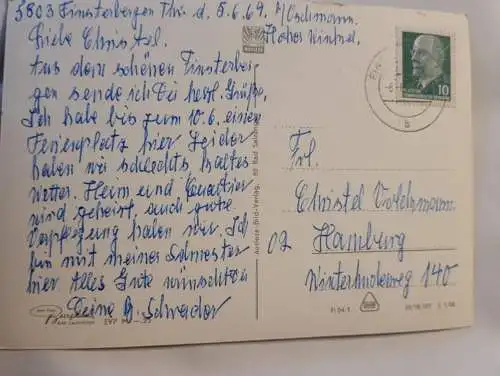 5803 Finsterbergen Thr. d. 5.6.69.
Liebe Christel.
Aus dem schönen Finsterber
gen sende ich Dir herzl. Grüße.
Ich habe bis zum 10.6. einen
Ferienplatz hier Leider
haben wir schlechts kaltes
Wetter. Heim und Quartier
wird geheizt, auch gute
Verpflegung haben wir. Ich
bin mit meiner Schwester
hier Alles Gute wünscht
Deine G. Schrader
Hoher
10
b
Frl.
Christel
02 Hamburg
Winterhuderweg 140
Auslese-Bild-Verlag, 69 Bad Salzungen